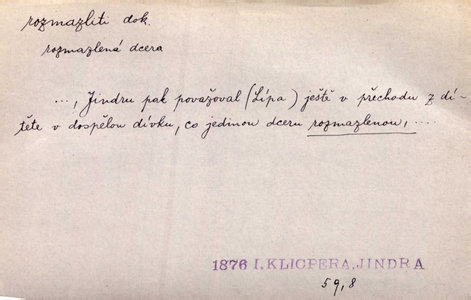 rozmazliti dok.
rozmazlená dcera
..., Jindru pak považoval (Lípa) ještě v přechodu z dí-
těte v dospělou dívku, co jedinou dceru rozmazlenou, ....
1876 I. KLICPERA, JINDRA
59, 8